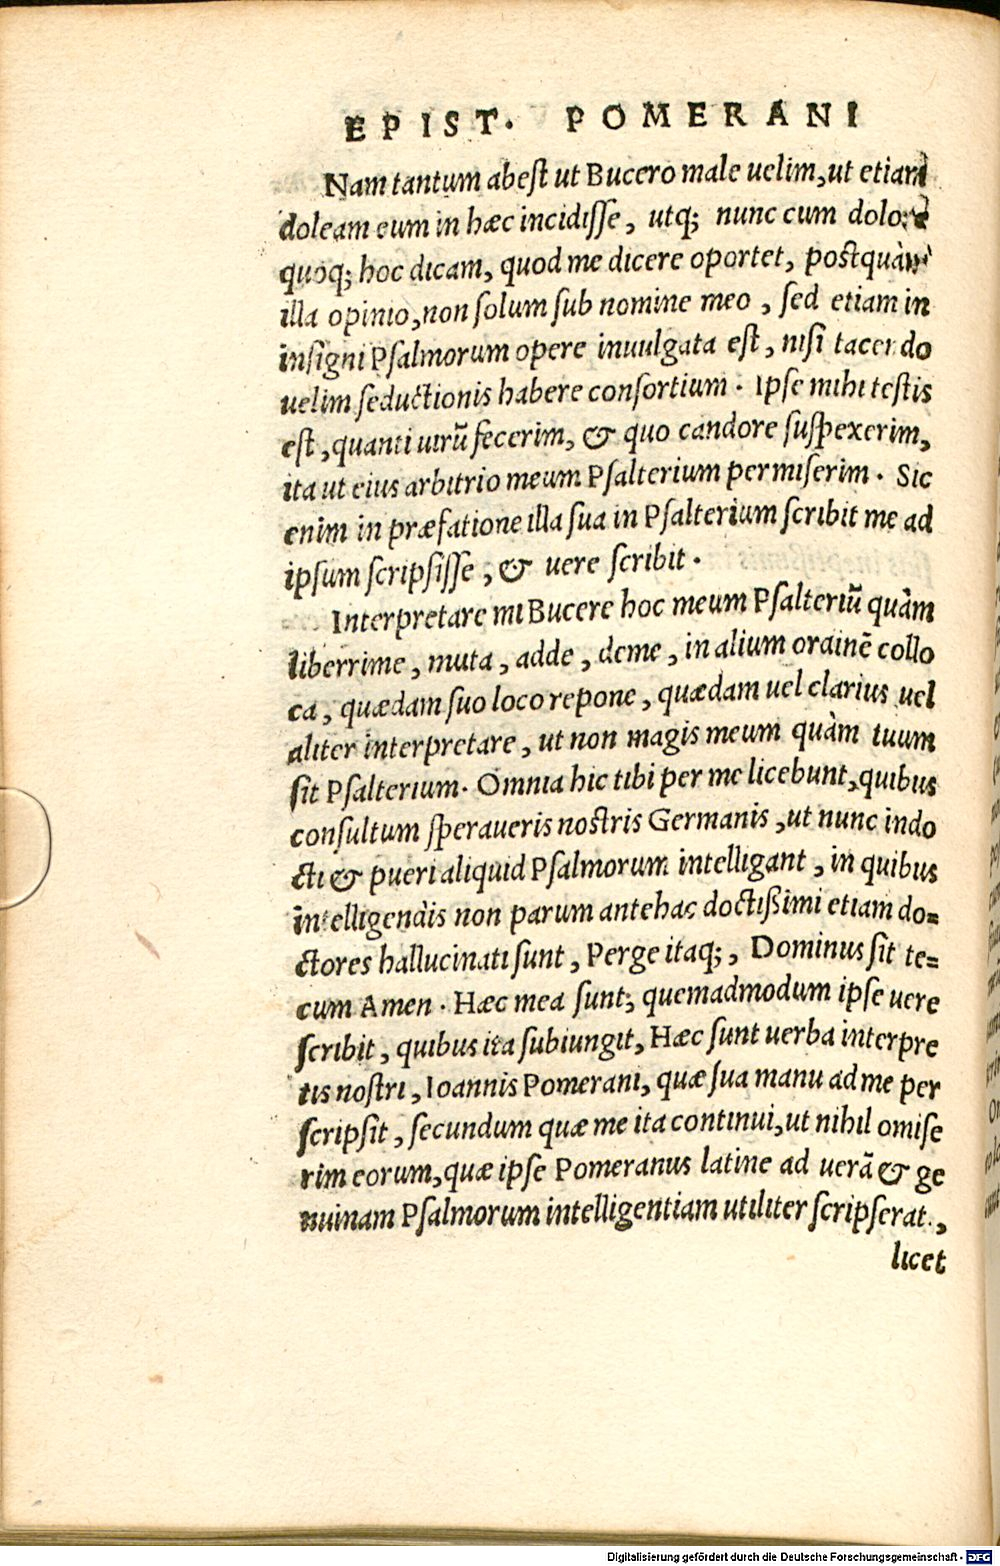 EPIST. POMERANI
Nam tantum abest ut Bucero male uelim, ut etiam
doleam eum in hæc incidisse, utq; nunc cum dolore
quoq; hoc dicam, quod me dicere oportet, postquàm
illa opinio, non solum sub nomine meo, sed etiam in
insigni Psalmorum opere inuulgata est, nisi tacendo
uelim seductionis habere consortium. Ipse mihi testis
est, quanti uirũ fecerim, & quo candore suspexerim,
ita ut eius arbitrio meum Psalterium permiserim. Sic
enim in præfatione illa sua in Psalterium scribit me ad
ipsum scripsisse, & uere scribit.
Interpretare mi Bucere hoc meum Psalteriũ quàm
liberrime, muta, adde, deme, in alium ordinẽ collo
ca, quædam suo loco repone, quædam uel clarius uel
aliter interpretare, ut non magis meum quàm tuum
sit Psalterium. Omnia hic tibi per me licebunt, quibus
consultum speraueris nostris Germanis, ut nunc indo
cti & pueri aliquid Psalmorum intelligant, in quibus
intelligendis non parum antehac doctißimi etiam do=
ctores hallucinati sunt, Perge itaq;, Dominus sit te=
cum Amen. Hæc mea sunt; quemadmodum ipse uere
scribit, quibus ita subiungit, Hæc sunt uerba interpre
tis nostri, Ioannis Pomerani, quæ sua manu ad me per
scripsit, secundum quæ me ita continui, ut nihil omise
rim eorum, quæ ipse Pomeranus latine ad uerã & ge
nuinam Psalmorum intelligentiam utiliter scripserat.,
licet
Digitalisierung gefördert durch die Deutsche Forschungsgemeinschaft - DFG